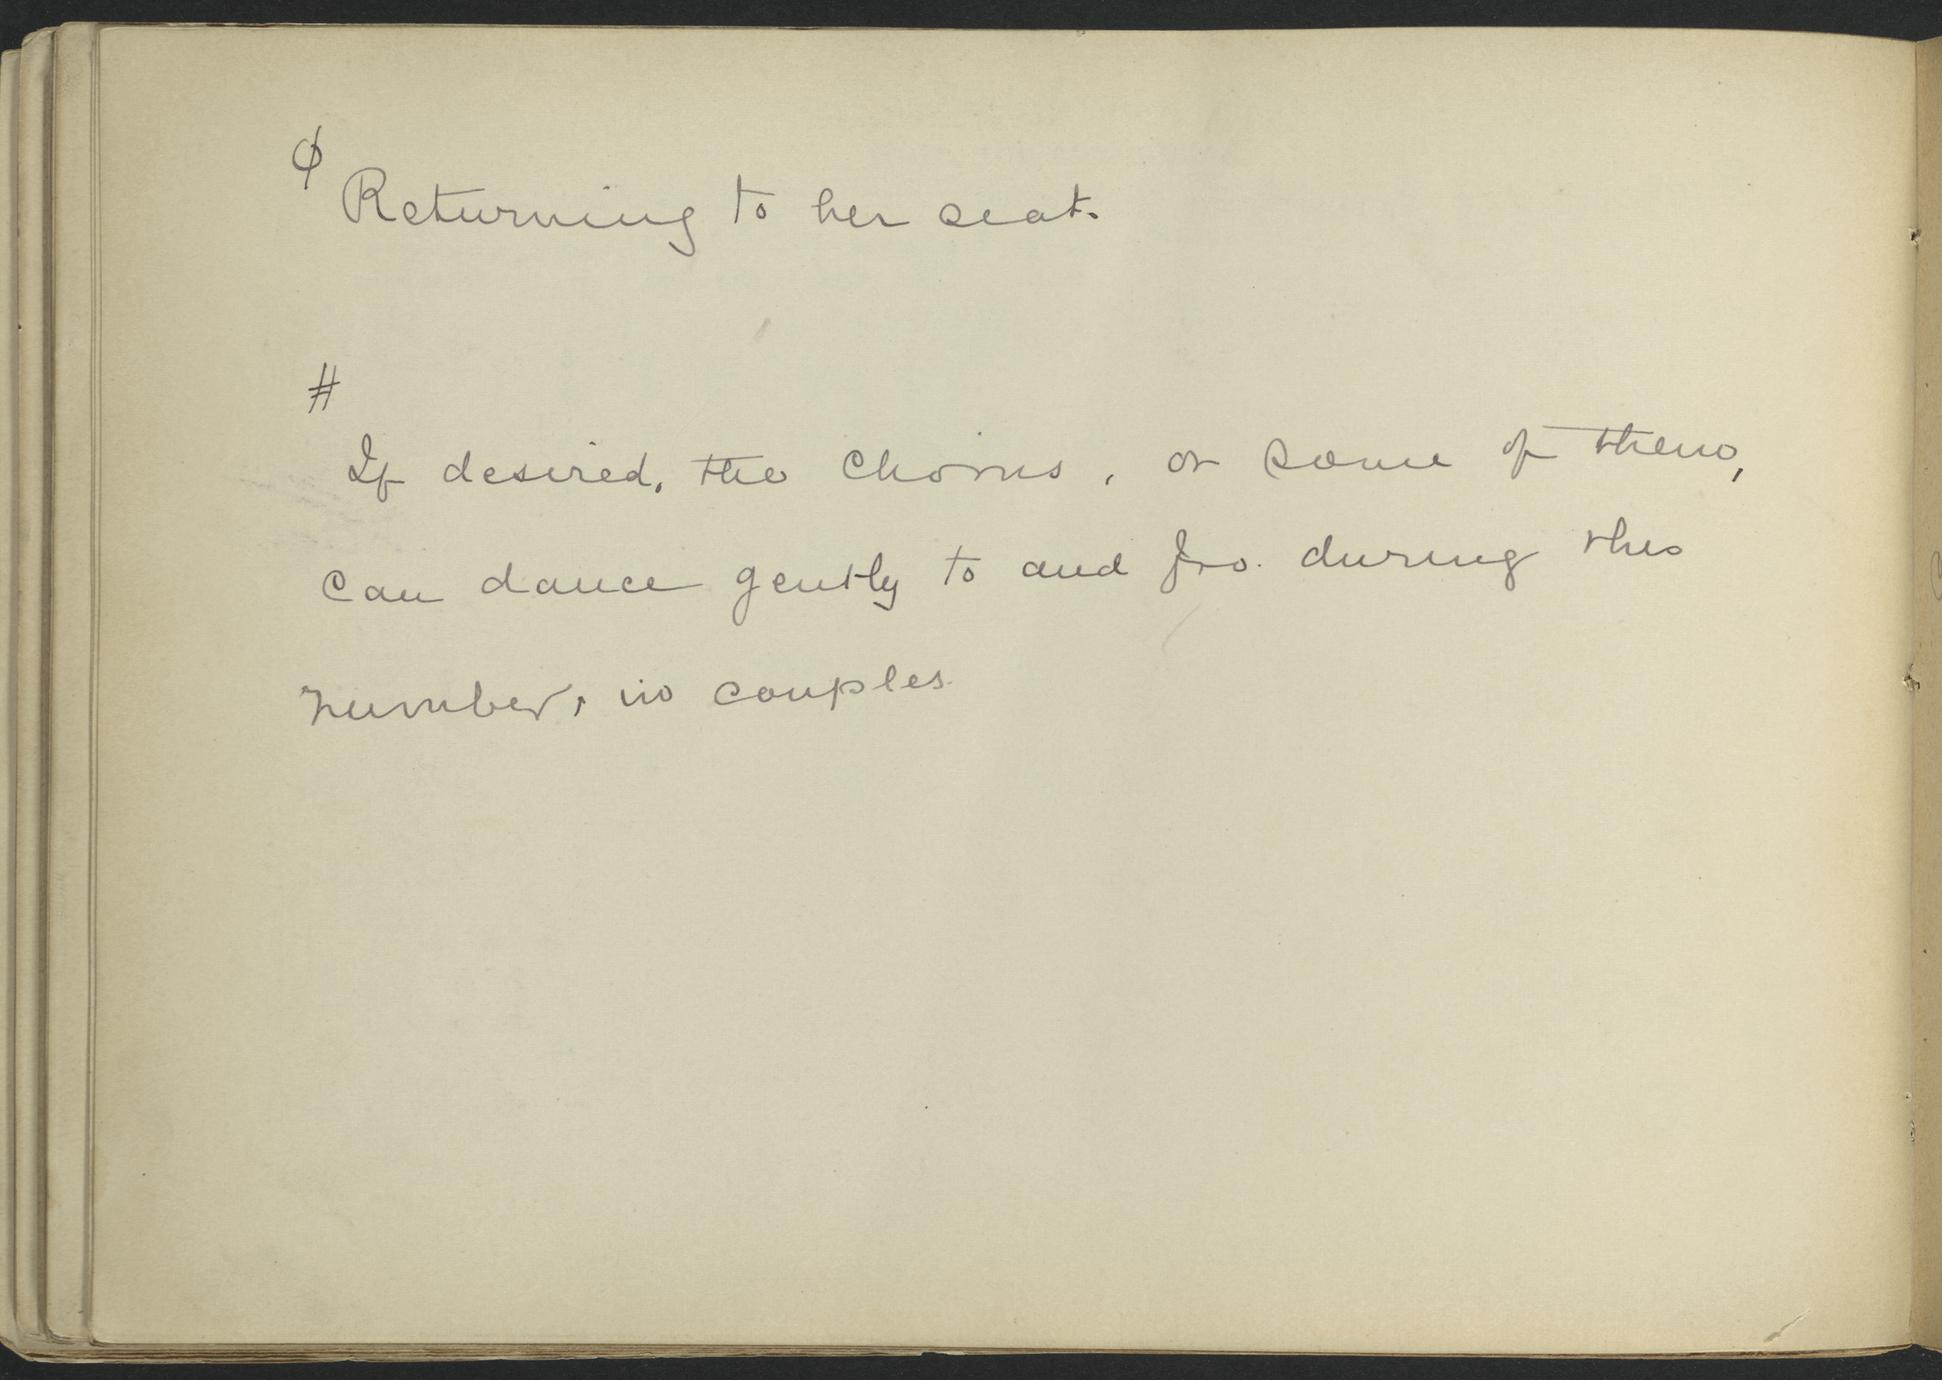 φ
Returning to her seat.
#
If desired, the Chorus, or some of them,
can dance gently to and fro. during this
number, in couples